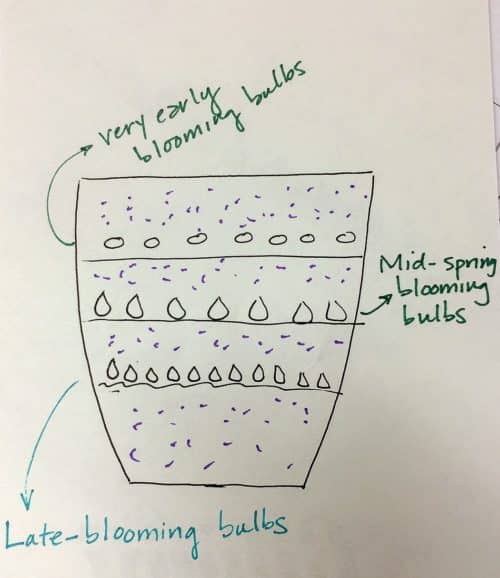 very early
blooming bulbs
Mid-spring
blooming
bulbs
Late-blooming bulbs